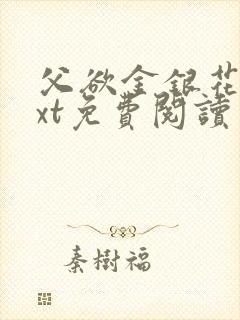 父欲金銀花
xt免費閱讀
秦樹福